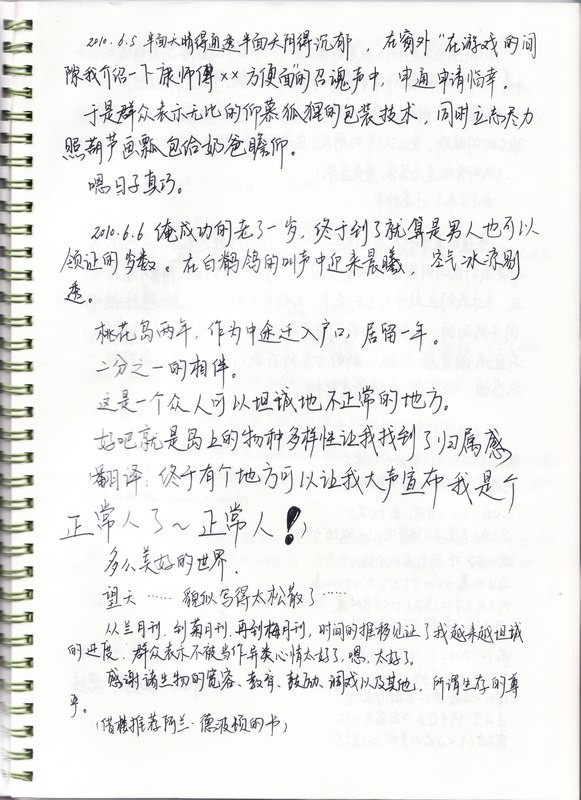 2010.6.5 半面天晴得通透半面天阴得沉郁，在窗外“在游戏的间
隙我介绍一下康师傅××方便面”的召魂声中，申通申请临幸。
于是群众表示无比的仰慕狐狸的包装技术，同时立志尽力
照葫芦画瓢包给奶爸瞻仰。
嗯日子真巧。
2010.6.6 俺成功的老了一岁，终于到了就算是男人也可以
领证的岁数。在白鹡鸰的叫声中迎来晨曦，空气冰凉剔
透。
桃花岛两年，作为中途迁入户口，居留一年。
二分之一的相伴。
这是一个众人可以坦诚地不正常的地方。
好吧就是岛上的物种多样性让我找到了归属感
（翻译：终于有个地方可以让我大声宣布我是个
正常人了～正常人！）
多么美好的世界.
望天 …… 貌似写得太松散了……
从兰月刊.到菊月刊.再到梅月刊，时间的推移见证了我越来越坦诚
的进度，群众表示不被当作异类心情太好了，嗯，太好了。
感谢诸生物的宽容、教育、鼓励、调戏以及其他，所谓生存的尊
乎。
（借楼推荐阿兰·德波顿的书）